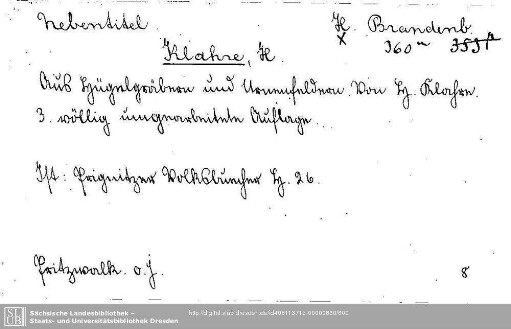 Nebentitel.
H. Brandenb.
x
360 m
Klahre, H.
Aus Hügelgräbern und Urnenfeldern. Von H. Klahre.
3. völlig umgearbeitete Auflage...
Ist: Prignitzer Volksbücher H. 26.
Pritzwalk. o. J.
8
SLUB
Sächsische Landesbibliothek –
Staats- und Universitätsbibliothek Dresden